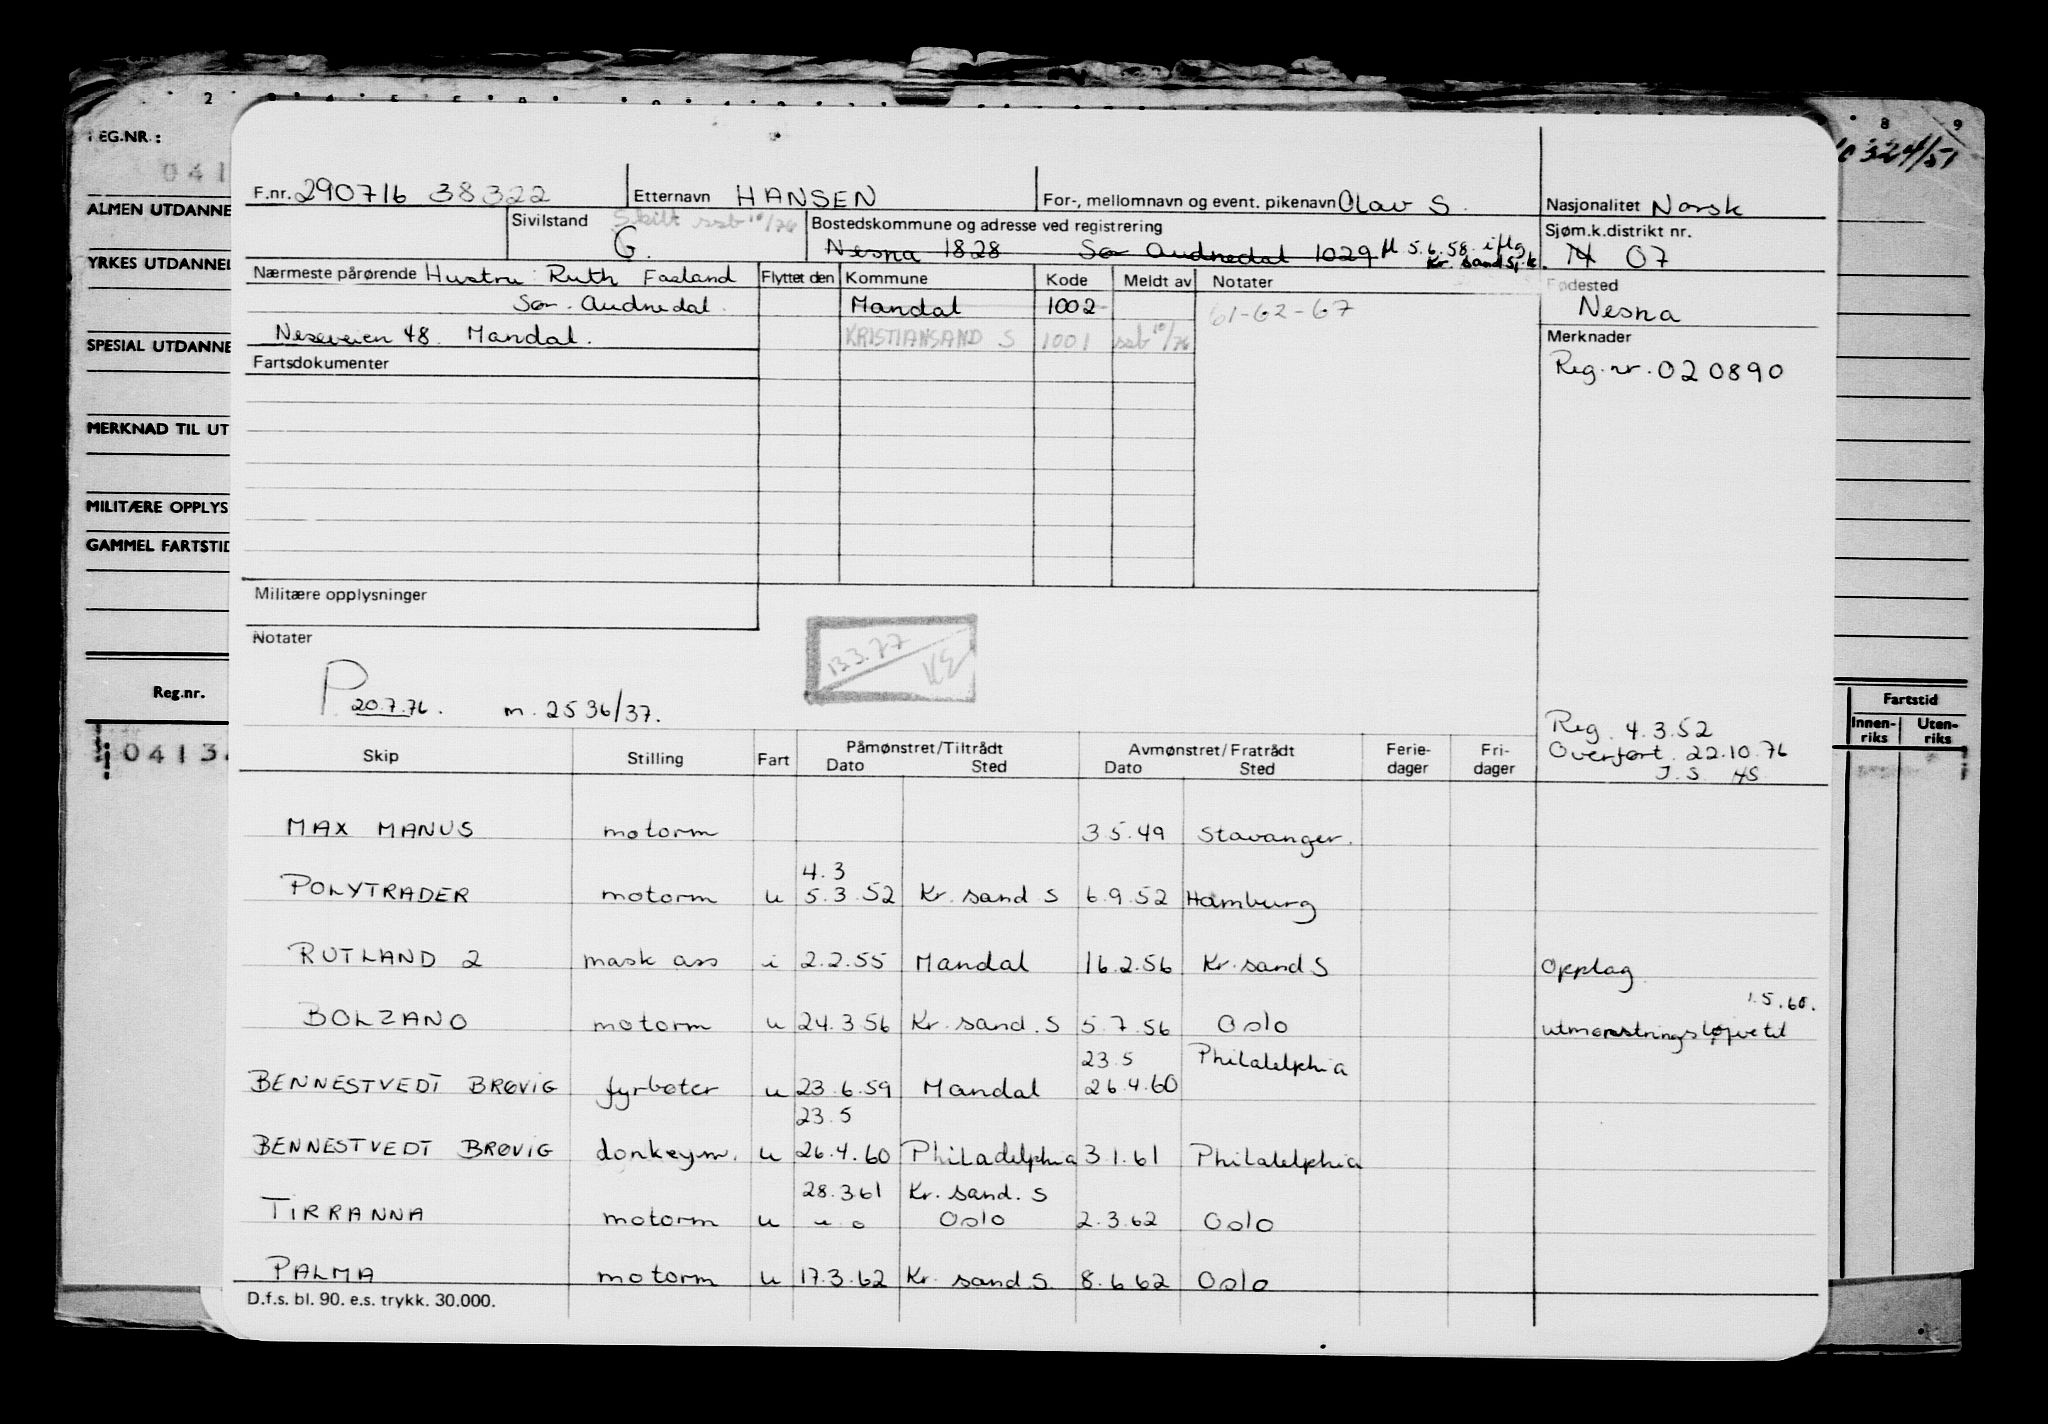 2 8 9
REG.NR.: 041
324/51
F.nr. 290716 38322 Etternavn HANSEN For-, mellomnavn og event. pikenavn Olav S. Nasjonalitet Norsk
ALMEN UTDANNE
Sivilstand Skilt ssb 10/76 G. Bostedskommune og adresse ved registrering Sjøm.k.distrikt nr.
Nesna 1828 Sør Audnedal 1029 fl 5.6.58 iflg. Kr. sand S j.k. N 07
YRKES UTDANNEL
Nærmeste pårørende Hustru: Ruth Faeland Flyttet den Kommune Kode Meldt av Notater Fødested
Sør-Audnedal. Mandal 1002 61-62-67 Nesna
SPESIAL UTDANNE
Neseveien 48. Mandal. KRISTIANSAND S 1001 ssb 10/76 Merknader
Fartsdokumenter Reg.nr. 020890
MERKNAD TIL UT
MILITÆRE OPPLYS
GAMMEL FARTSTID
Militære opplysninger
Notater
13.3.77 KE
P. 20.7.76. m. 2536/37.
Reg.nr. Fartstid
Innen-riks Uten-riks
Reg. 4.3.52
Overført. 22.10.76
J.S. HS
0413
Skip Stilling Fart Påmønstret/Tiltrådt Avmønstret/Fratrådt Ferie-dager Fri-dager
Dato Sted Dato Sted
MAX MANUS motorm 3.5.49 Stavanger.
4.3
POLYTRADER motorm u 5.3.52 Kr. sand S 6.9.52 Hamburg
RUTLAND 2 mask ass i 2.2.55 Mandal 16.2.56 Kr. sand S Opplag
1.5.60.
BOLZANO motorm u 24.3.56 Kr. sand. S 5.7.56 Oslo utmønstringsløyve til
23.5 Philadelphia
BENNESTVEDT BRØVIG fyrbøter u 23.6.59 Mandal 26.4.60
23.5
BENNESTVEDT BRØVIG donkeym. u 26.4.60 Philadelphia 3.1.61 Philadelphia
28.3 61 Kr. sand. S
TIRRANNA motorm u u o Oslo 2.3.62 Oslo
PALMA motorm u 17.3.62 Kr. sand S. 8.6.62 Oslo
D.f.s. bl. 90. e.s. trykk. 30.000.